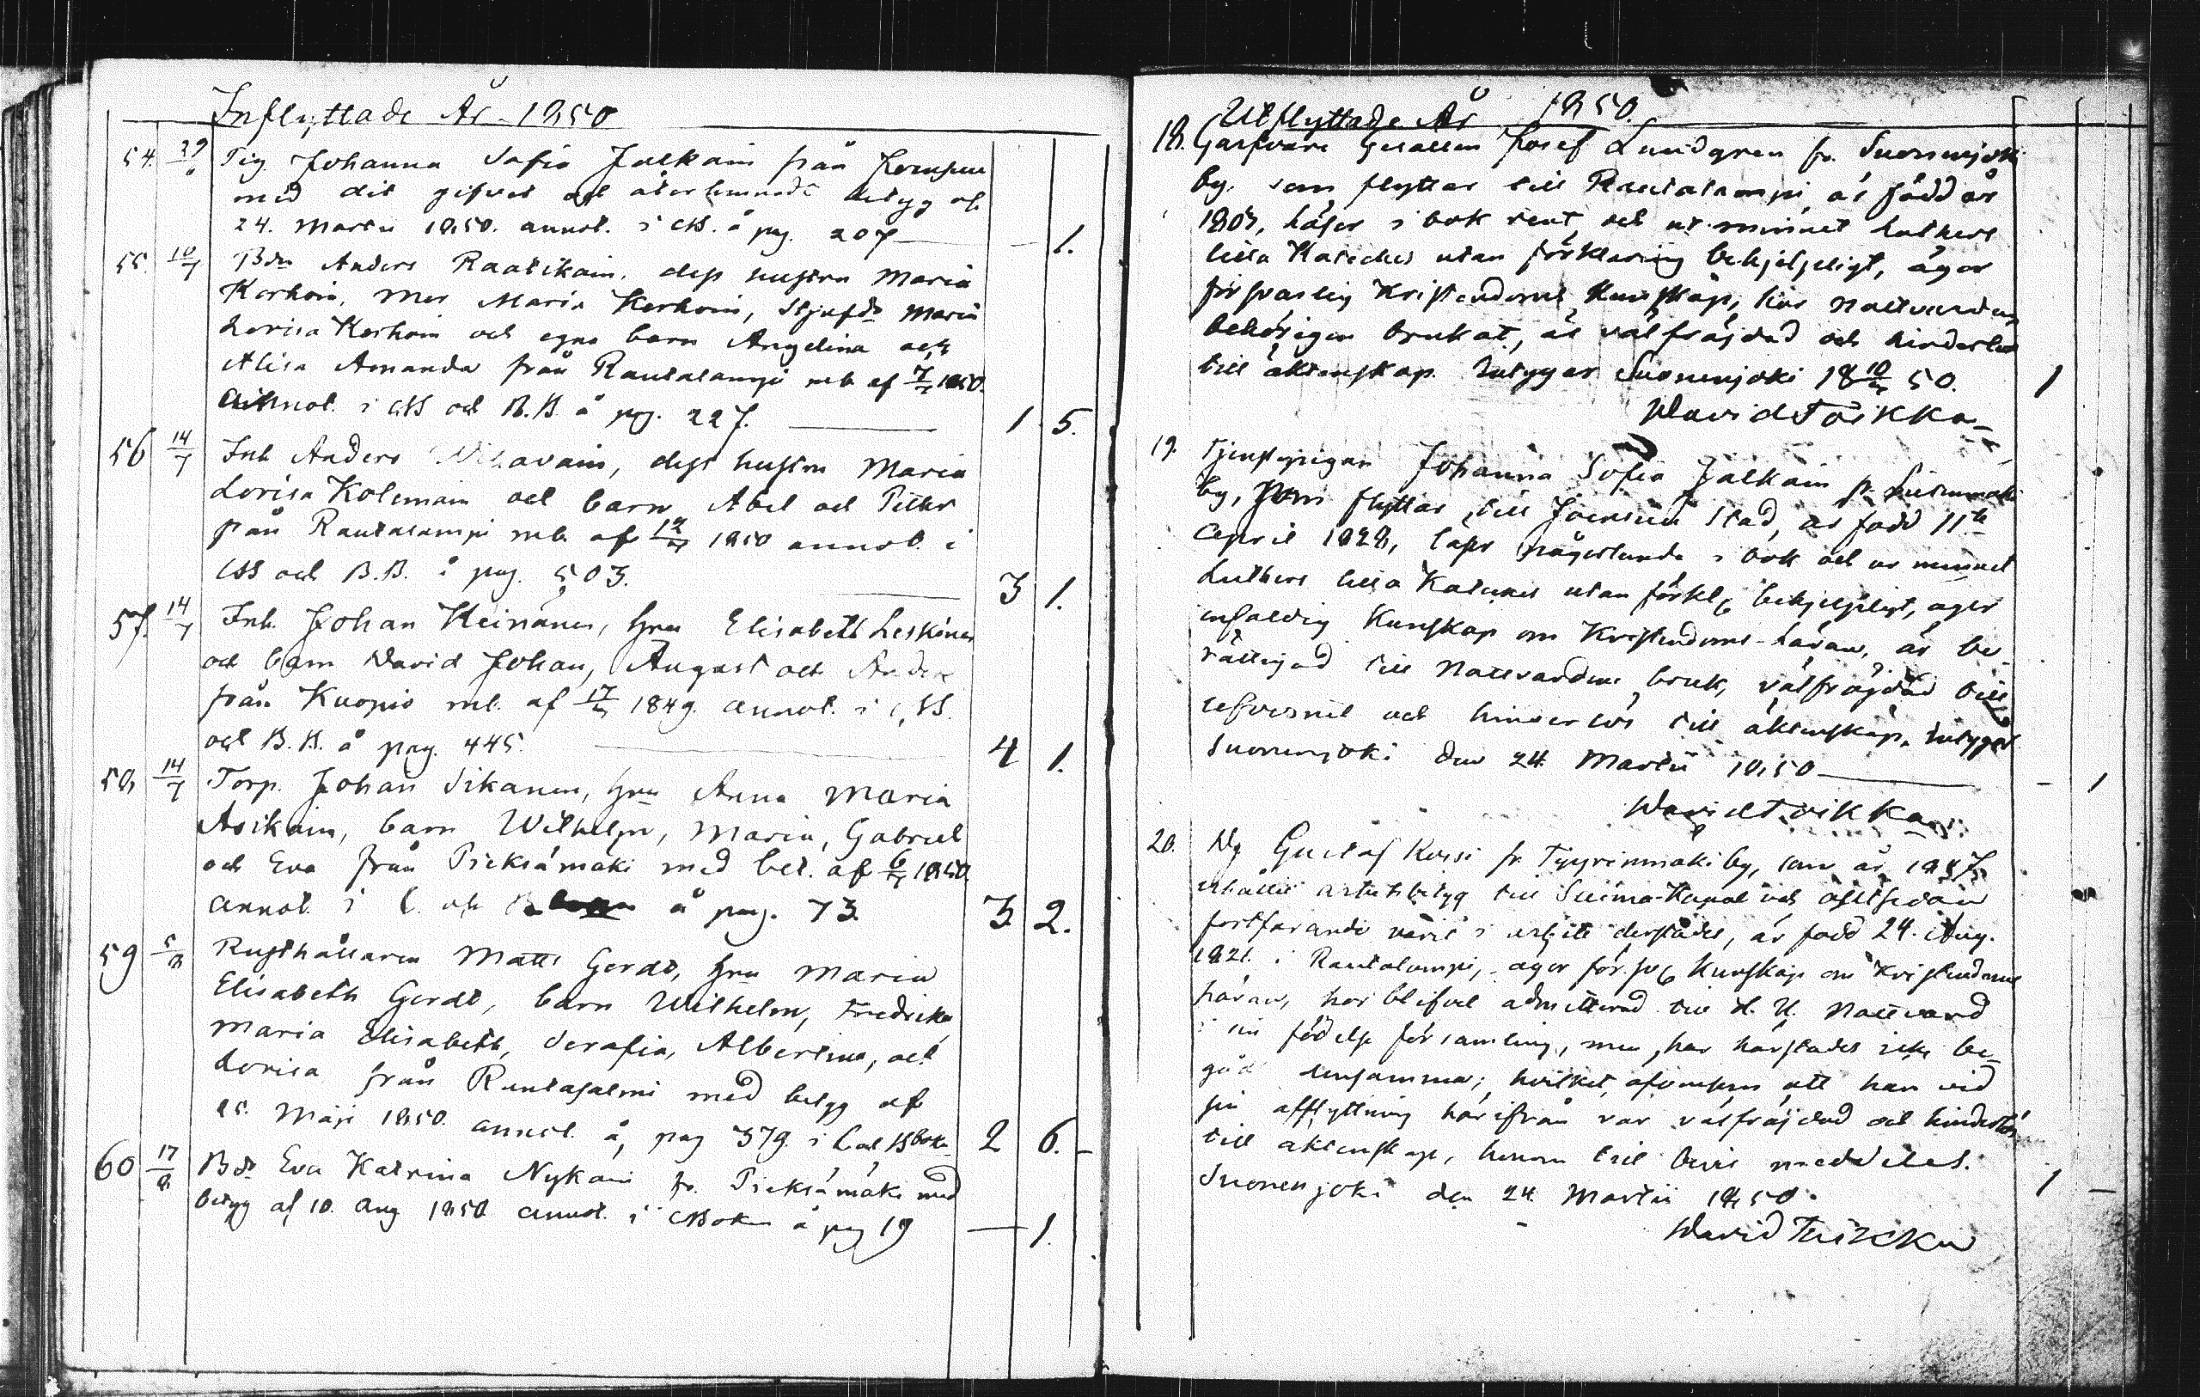 Inflyttade År 1850
54. Pig. Johanna Sofia Jalkain från
med dit gifvet och återlemnadt betyg af
24. Martii 1850. annot. i CB. å pag. 207
1.
55. 10/7 Bdn Anders Raatikain, dess hustru Maria
Korhoin, Mor Maria Korhoin, Stjufdr Maria
Lovisa Korhoin och egna barn Angelina och
Alisa Amanda från Rautalampi mb af 7/7 1850.
annot. i CB och B.B. å pag. 227.
1 5.
56 14/7 Inh. Anders, dess hustru Maria
Lovisa Kolemain och barn Abel och Petter
från Rautalampi mb. af 1850 annot. i
CB och B.B. å pag. 503.
3 1.
57. 14/7 Inh. Johan Heinänen, hru Elisabeth Leskinen
och barn David Johan, August och Anders
från Kuopio mb. af 1849. annot. i CB.
och B.B. å pag. 445.
4 1.
58 14/7 Torp. Johan Sikanen, hru Anna Maria
Asikain, barn Wilhelm, Maria, Gabriel
och Eva från Pieksämäki med bet. af 1850.
annot. i C. och å pag. 73.
3 2.
59 5/8 Rusthållaren Matts Gerdt, hru Maria
Elisabeth Gerdt, barn Wilhelm, Fredrika,
Maria Elisabeth, Serafia, Albertina, och
Lovisa från Rantasalmi med betyg af
25. Maji 1850. annot. å pag 379. i Boken
2 6.
60 17/8 Bdr Eva Katrina Nykain fr. Pieksämäki med
betyg af 10. Aug 1850. annot. i CBoken å pag 19
1.
Utflyttade År 1850.
18. Garfvare Gesällen Josef Lundgren fr. Suonenjoki
by. som flyttar till Rautalampi, är född år
1807, läser i bok rent, och ur minnet Luthers
lilla Kateches utan förklaring behjelpligt, äger
försvarlig Kristendoms Kunskap, har Nattvarden
behörigen brukat, är välfräjdad och hinderlös
till äktenskap. Intygar Suonenjoki 18 50.
1
David Toikka
19. Tjenstepigan Johanna Sofia Jalkain fr.
by, som flyttar till Joensuu Stad, är född 11te
April 1828, läser någorlunda i bok och ur minnet
Luthers lilla Kateches utan förkl. behjelpligt, äger
enfaldig Kunskap om Kristendoms-läran, är be-
rättigad till Nattvardens bruk, välfräjdad till
lefvernet och hinderlös till äktenskap. Intygar
Suonenjoki den 24. Martii 1850
1
David Toikka
20. Dg Gustaf Korsi fr. Tyyrinmäki by, som år 1847
erhållit arbetsbetyg till Saima-Kanal och alltsedan
fortfarande varit i arbete derstädes, är född 24. Aug.
1821. i Rautalampi, äger förs. Kunskap om Kristendoms
läran, har blifvit admitterad till H. H. Nattvard
i sin födelse församling, men har härstädes icke be-
gått densamma; hvilket, äfvensom att han vid
sin afflyttning härifrån var välfräjdad och hinderlös
till äktenskap, honom till bevis meddelas.
Suonenjoki den 24. Martii 1850.
1
David Toikka